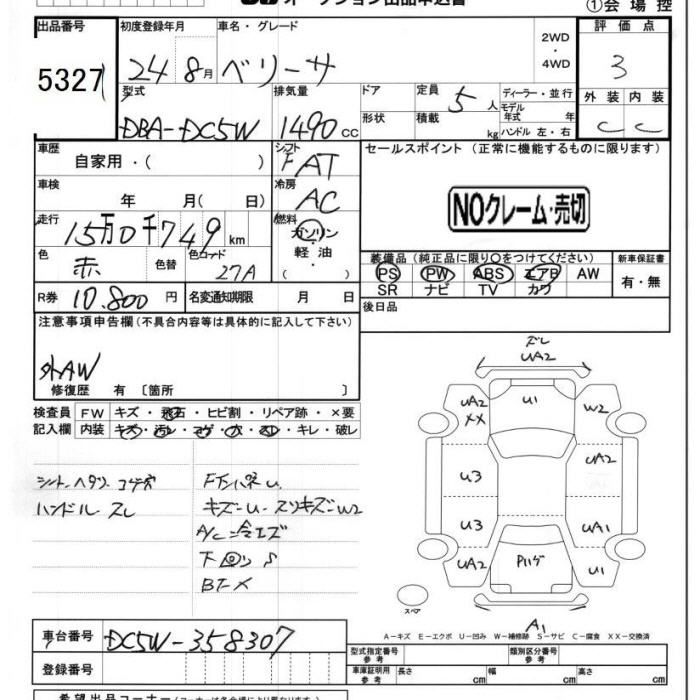 オークション出品申込書
①会場控
出品番号 初度登録年月 車名・グレード 2WD・4WD 評価点
5327 24 8月 ベリーサ 3
型式 排気量 ドア 定員 5人 ディーラー・並行 外装 内装
DBA-DC5W 1490cc 形状 積載 kg モデル年式 年 C C
ハンドル 左・右
車歴 自家用・( ) シフト FAT セールスポイント (正常に機能するものに限ります)
車検 年 月( 日) 冷房 AC
NOクレーム・売切
走行 15万0千749km 燃料 ガソリン・軽油・( )
色 赤 色替 色コード 27A 装備品(純正品に限り○をつけてください) 新車保証書
PS PW ABS エアB AW 有・無
SR ナビ TV カワ
R券 10,800円 名変通知期限 月 日 後日品
注意事項申告欄(不具合内容等は具体的に記入して下さい)
外AW
修復歴 有〔箇所 〕
検査員 FW キズ・飛石・ヒビ割・リペア跡・×要
記入欄 内装 キズ・汚レ・コゲ・穴・スレ・キレ・破レ
シート ヘタリ コゲ
ハンドル スレ
Fナンバー U
キズ U スリキズ W2
A/C
下回り S
BT-X
ズレ
UA2
UA2 XX
U1
W2
U3
UA2
U3
UA1
UA2
U1
スペア
A1
A-キズ E-エクボ U-凹み W-補修跡 S-サビ C-腐食 XX-交換済
車台番号 DC5W-358307
型式指定番号 参考 類別区分番号 参考
登録番号
車庫証明用 参考 長さ cm 幅 cm 高さ cm
希望出品コーナー